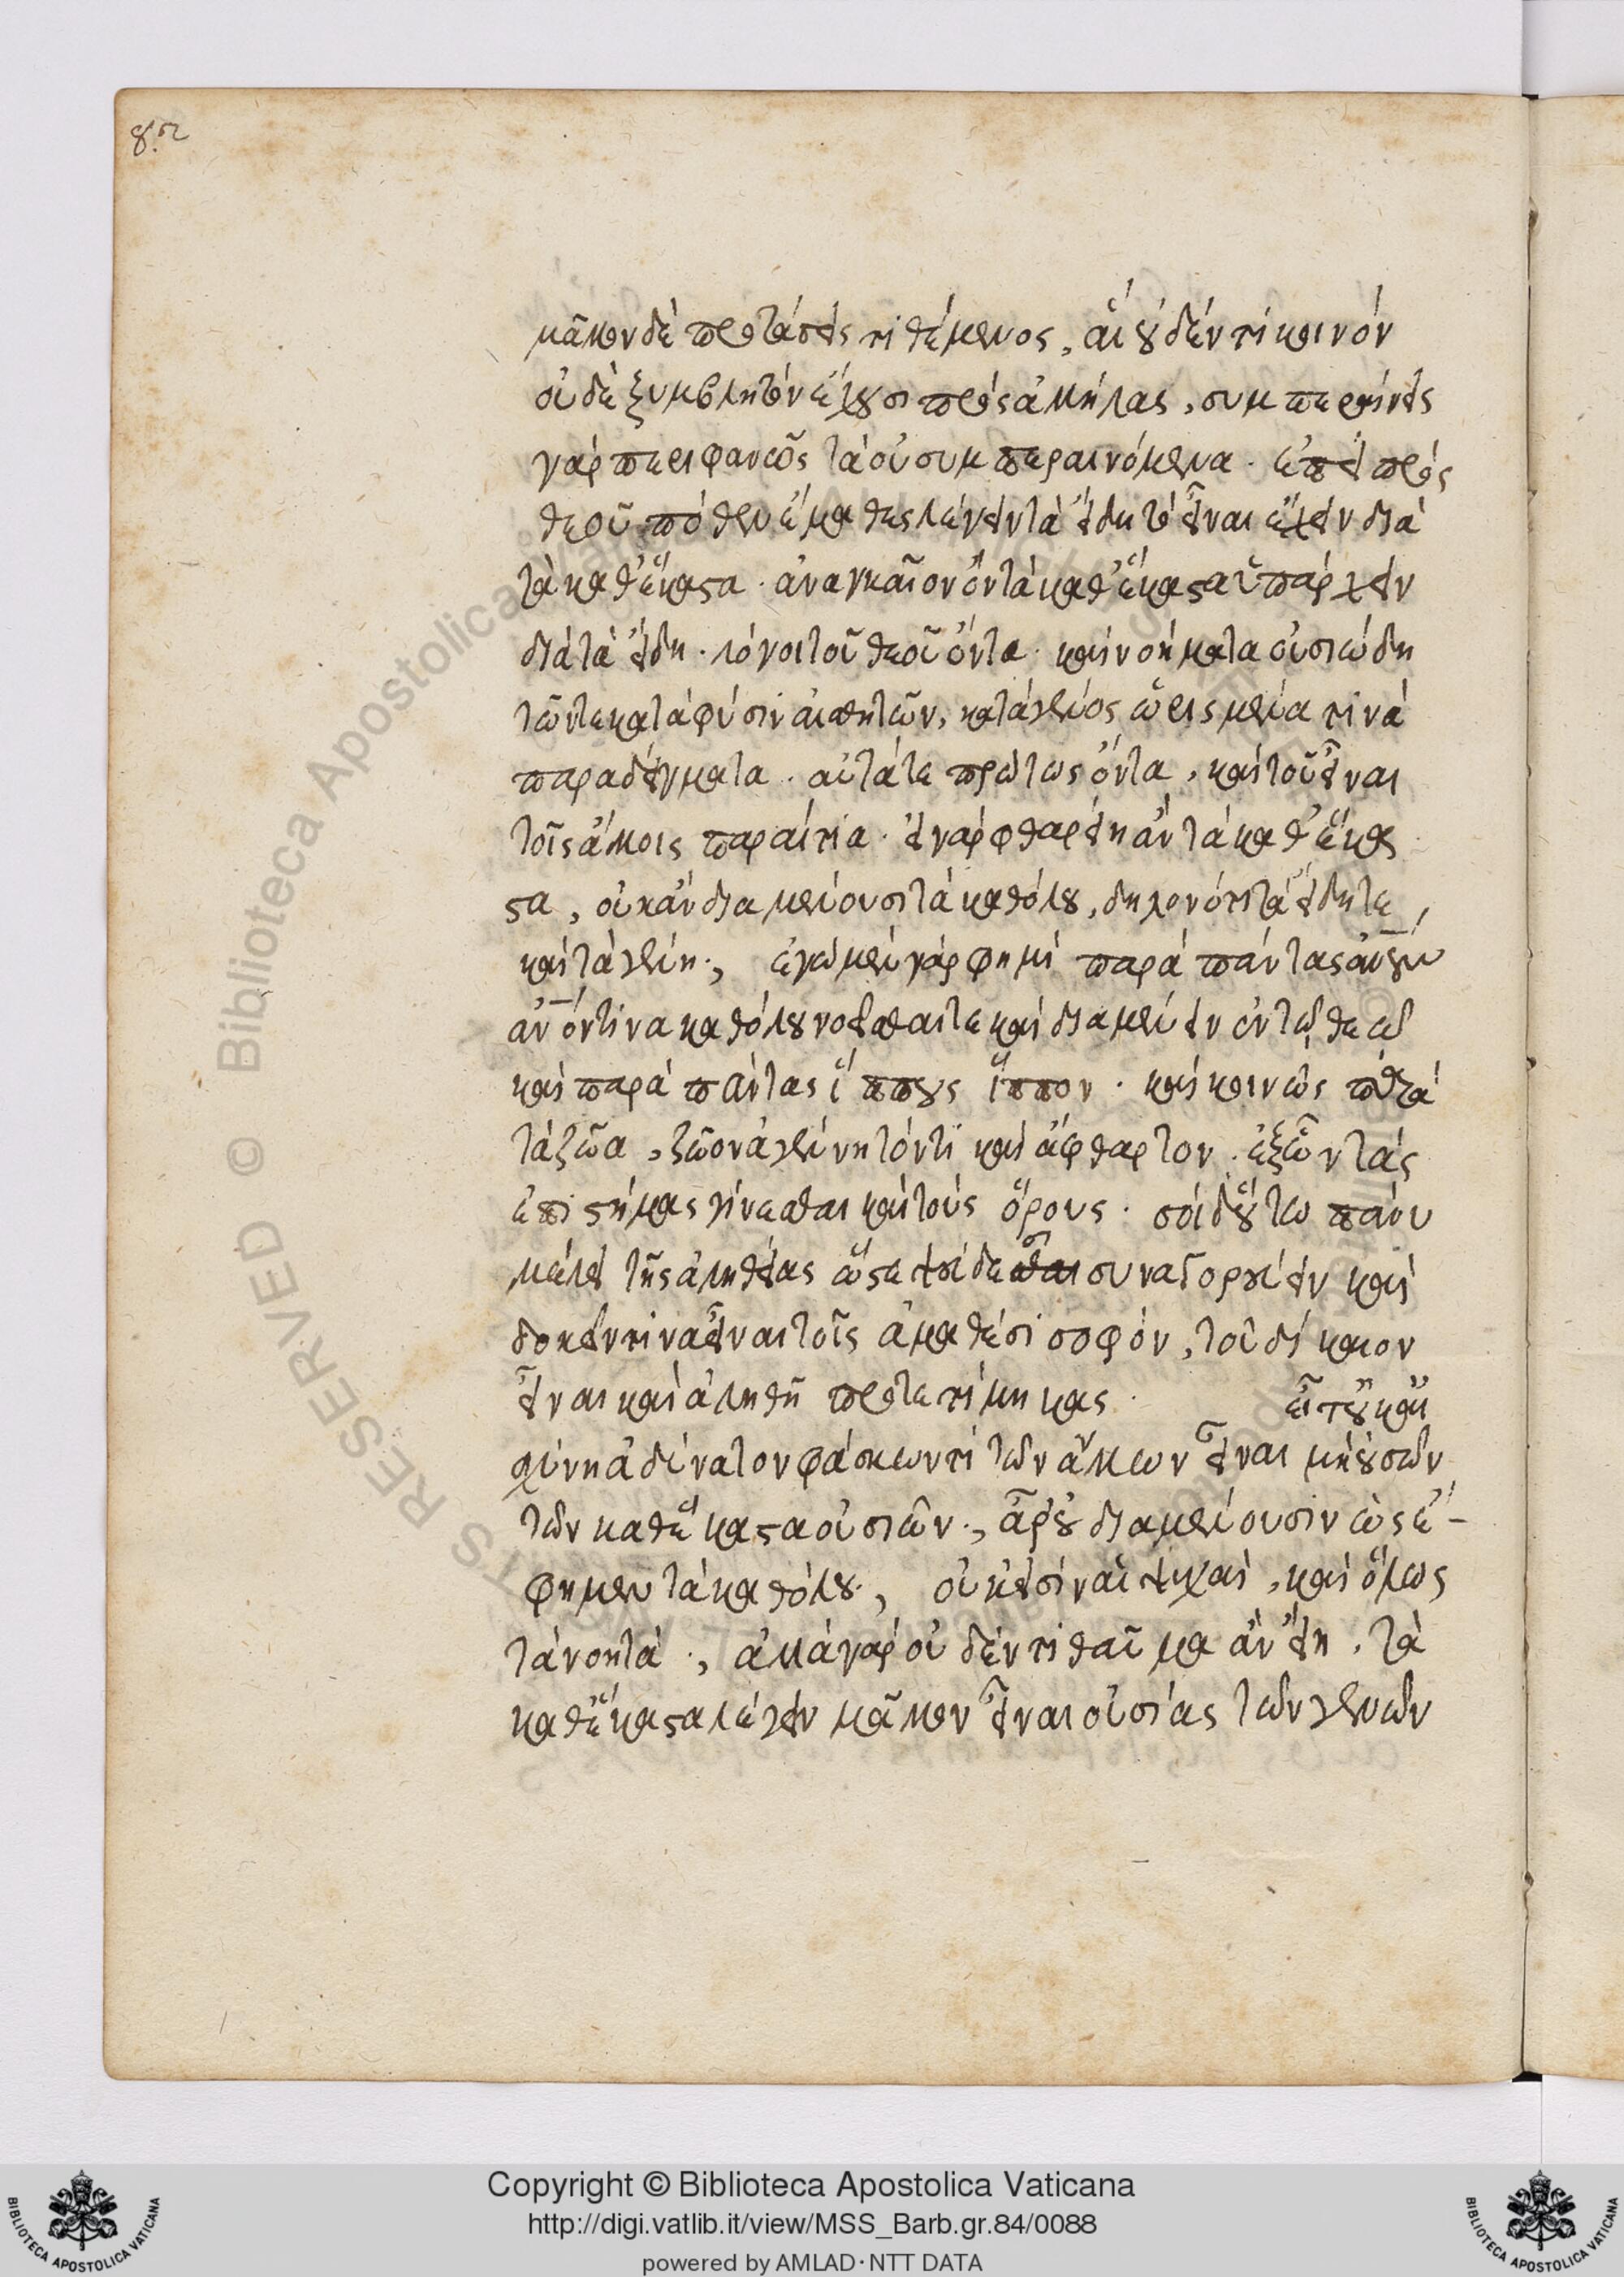 82
μᾶλλον δὲ προτάσεις τιθέμενος, αἳ οὐδέν τι κοινὸν
οὐδὲ ξυμβλητὸν ἔχουσι πρὸς ἀλλήλας, συμπεραίνεις
γὰρ περιφανῶς τὰ οὐ συμπεραινόμενα. ἐπεὶ πρὸς
θεοῦ πόθεν ἔμαθες λέγειν τὰ εἴδη τὸ εἶναι ἔχειν διὰ
τὰ καθ' ἕκαστα. ἀναγκαῖον ὂν τὰ καθ' ἕκαστα ὑπάρχειν
διὰ τὰ εἴδη. λόγοι τοῦ θεοῦ ὄντα. καὶ νοήματα οὐσιώδη
τῶν τε κατὰ φύσιν αἰσθητῶν, κατὰ γένος ὡρισμένα τινὰ
παραδείγματα. αὐτά τε πρώτως ὄντα, καὶ τοῦ εἶναι
τοῖς ἄλλοις παραίτια. εἰ γὰρ φθαρείη ἂν τὰ καθ' ἕκα
στα, οὐκ ἂν διαμένουσι τὰ καθόλου, δηλονότι τὰ εἴδη τε
καὶ τὰ γένη·, ἐγὼ μὲν γάρ φημι παρὰ πάντας ἀνους
ἀνον τινα καθόλου νοεῖσθαι τε καὶ διαμένειν ἐν τῷ θεῷ
καὶ παρὰ πάντας ἵππους ἵππον. καὶ κοινῶς παρὰ πάντα
τὰ ζῶα, ζῶον ἀγένητόν τι καὶ ἄφθαρτον. ἐξ ὧν τὰς
ἐπιστήμας γίνεσθαι καὶ τοὺς ὅρους. σοὶ δ' οὕτω πάνυ
μέλει τῆς ἀληθείας ὥστε ψεύδεσθαι συνατορκεῖν καὶ
δοκεῖν τινα εἶναι τοῖς ἀμαθέσι σοφόν, τοῦ δίκαιον
εἶναι καὶ ἀληθῆ προτετίμηκας. εἶτ' οὐκ αἰ
σχύνῃ ἀδύνατον φάσκων τι τῶν ἄλλων εἶναι μὴ οὐσῶν
τῶν καθ' ἕκαστα οὐσιῶν·, ἆρ' οὐ διαμένουσιν ὡς ἔ-
φημεν τὰ καθόλου·, οὐκ εἰσὶν αἱ ψυχαὶ, καὶ ὅλως
τὰ νοητά·, ἀλλὰ γὰρ οὐδέν τι θαῦμα ἂν εἴη, τὰ
καθ' ἕκαστα λέγειν μᾶλλον εἶναι οὐσίας τῶν γενῶν
© Biblioteca Apostolica
RESERVED
Copyright © Biblioteca Apostolica Vaticana
http://digi.vatlib.it/view/MSS_Barb.gr.84/0088
powered by AMLAD·NTT DATA
BIBLIOTECA APOSTOLICA VATICANA
BIBLIOTECA APOSTOLICA VATICANA